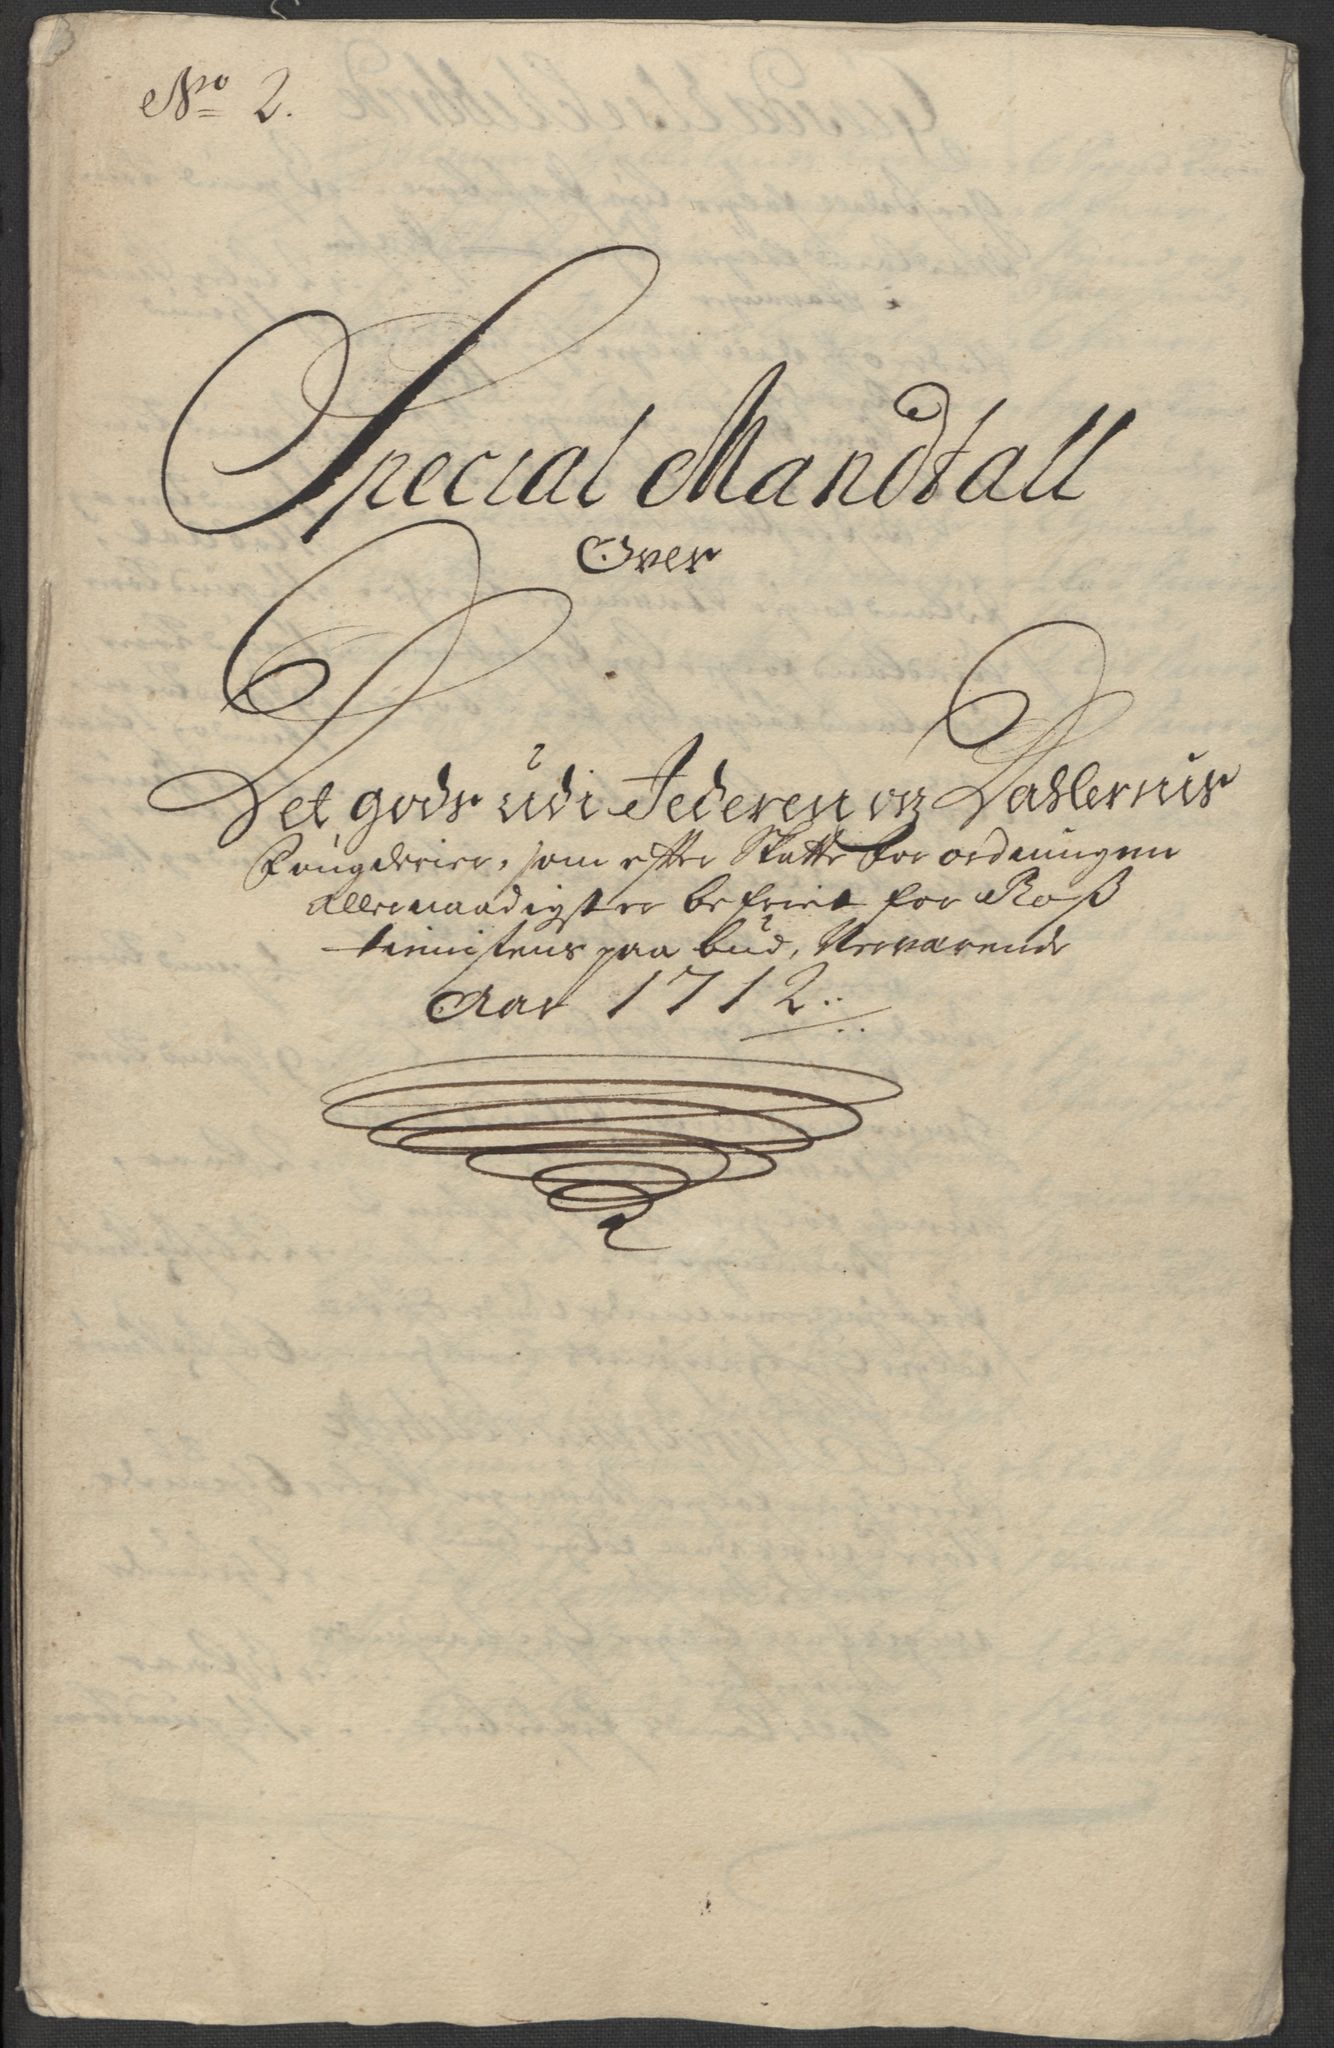 No 2.
Special Mandtall
Over
Det gods udi Jederen og Dadlernis
Fougderier, som efter Skatte forordningen
allernaadigst er befriet for Roß
tienistens paabud, Nerværende
Aar 1712